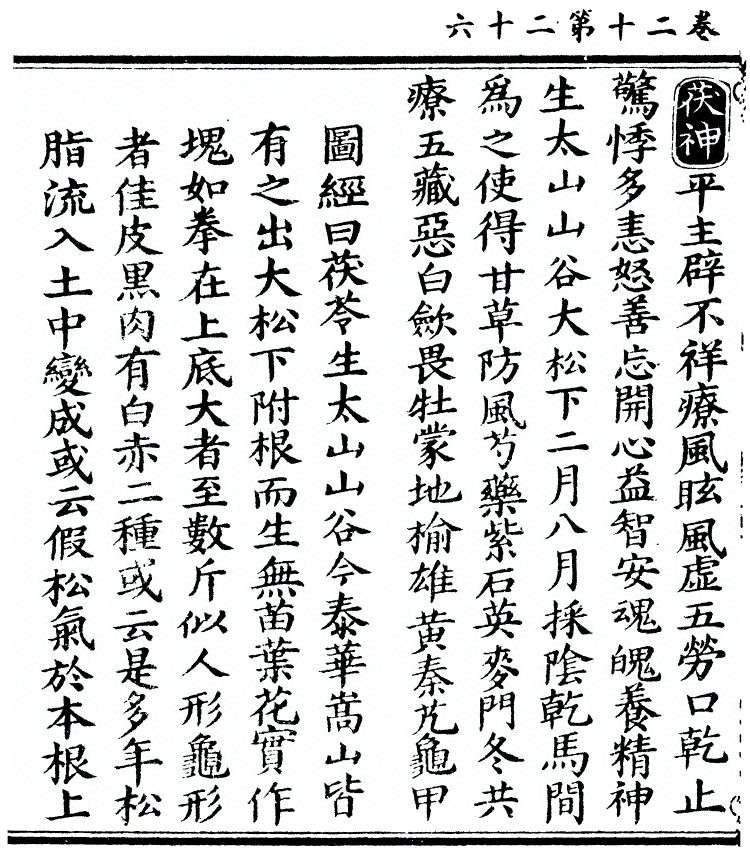 卷二十第二十六
茯神平主辟不祥療風眩風虛五勞口乾止
驚悸多恚怒善忘開心益智安魂魄養精神
生太山山谷大松下二月八月採陰乾馬間
為之使得甘草防風芍藥紫石英麥門冬共
療五藏惡白歛畏牡蒙地榆雄黃秦艽龜甲
圖經曰茯苓生太山山谷今泰華嵩山皆
有之出大松下附根而生無苗葉花實作
塊如拳在土底大者至數斤似人形龜形
者佳皮黑肉有白赤二種或云是多年松
脂流入土中變成或云假松氣於本根上